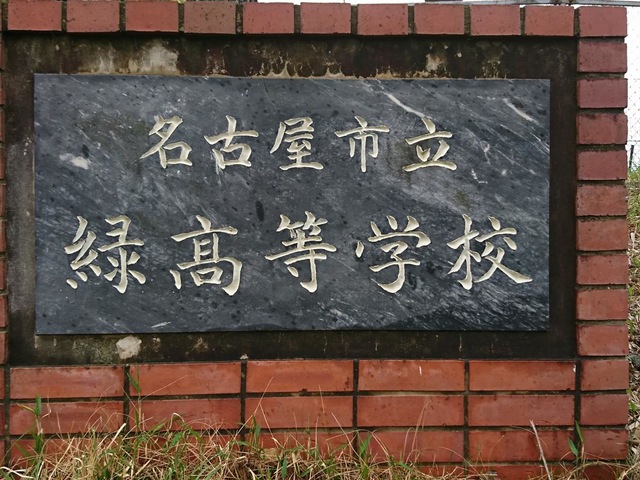 名古屋市立
緑髙等学校